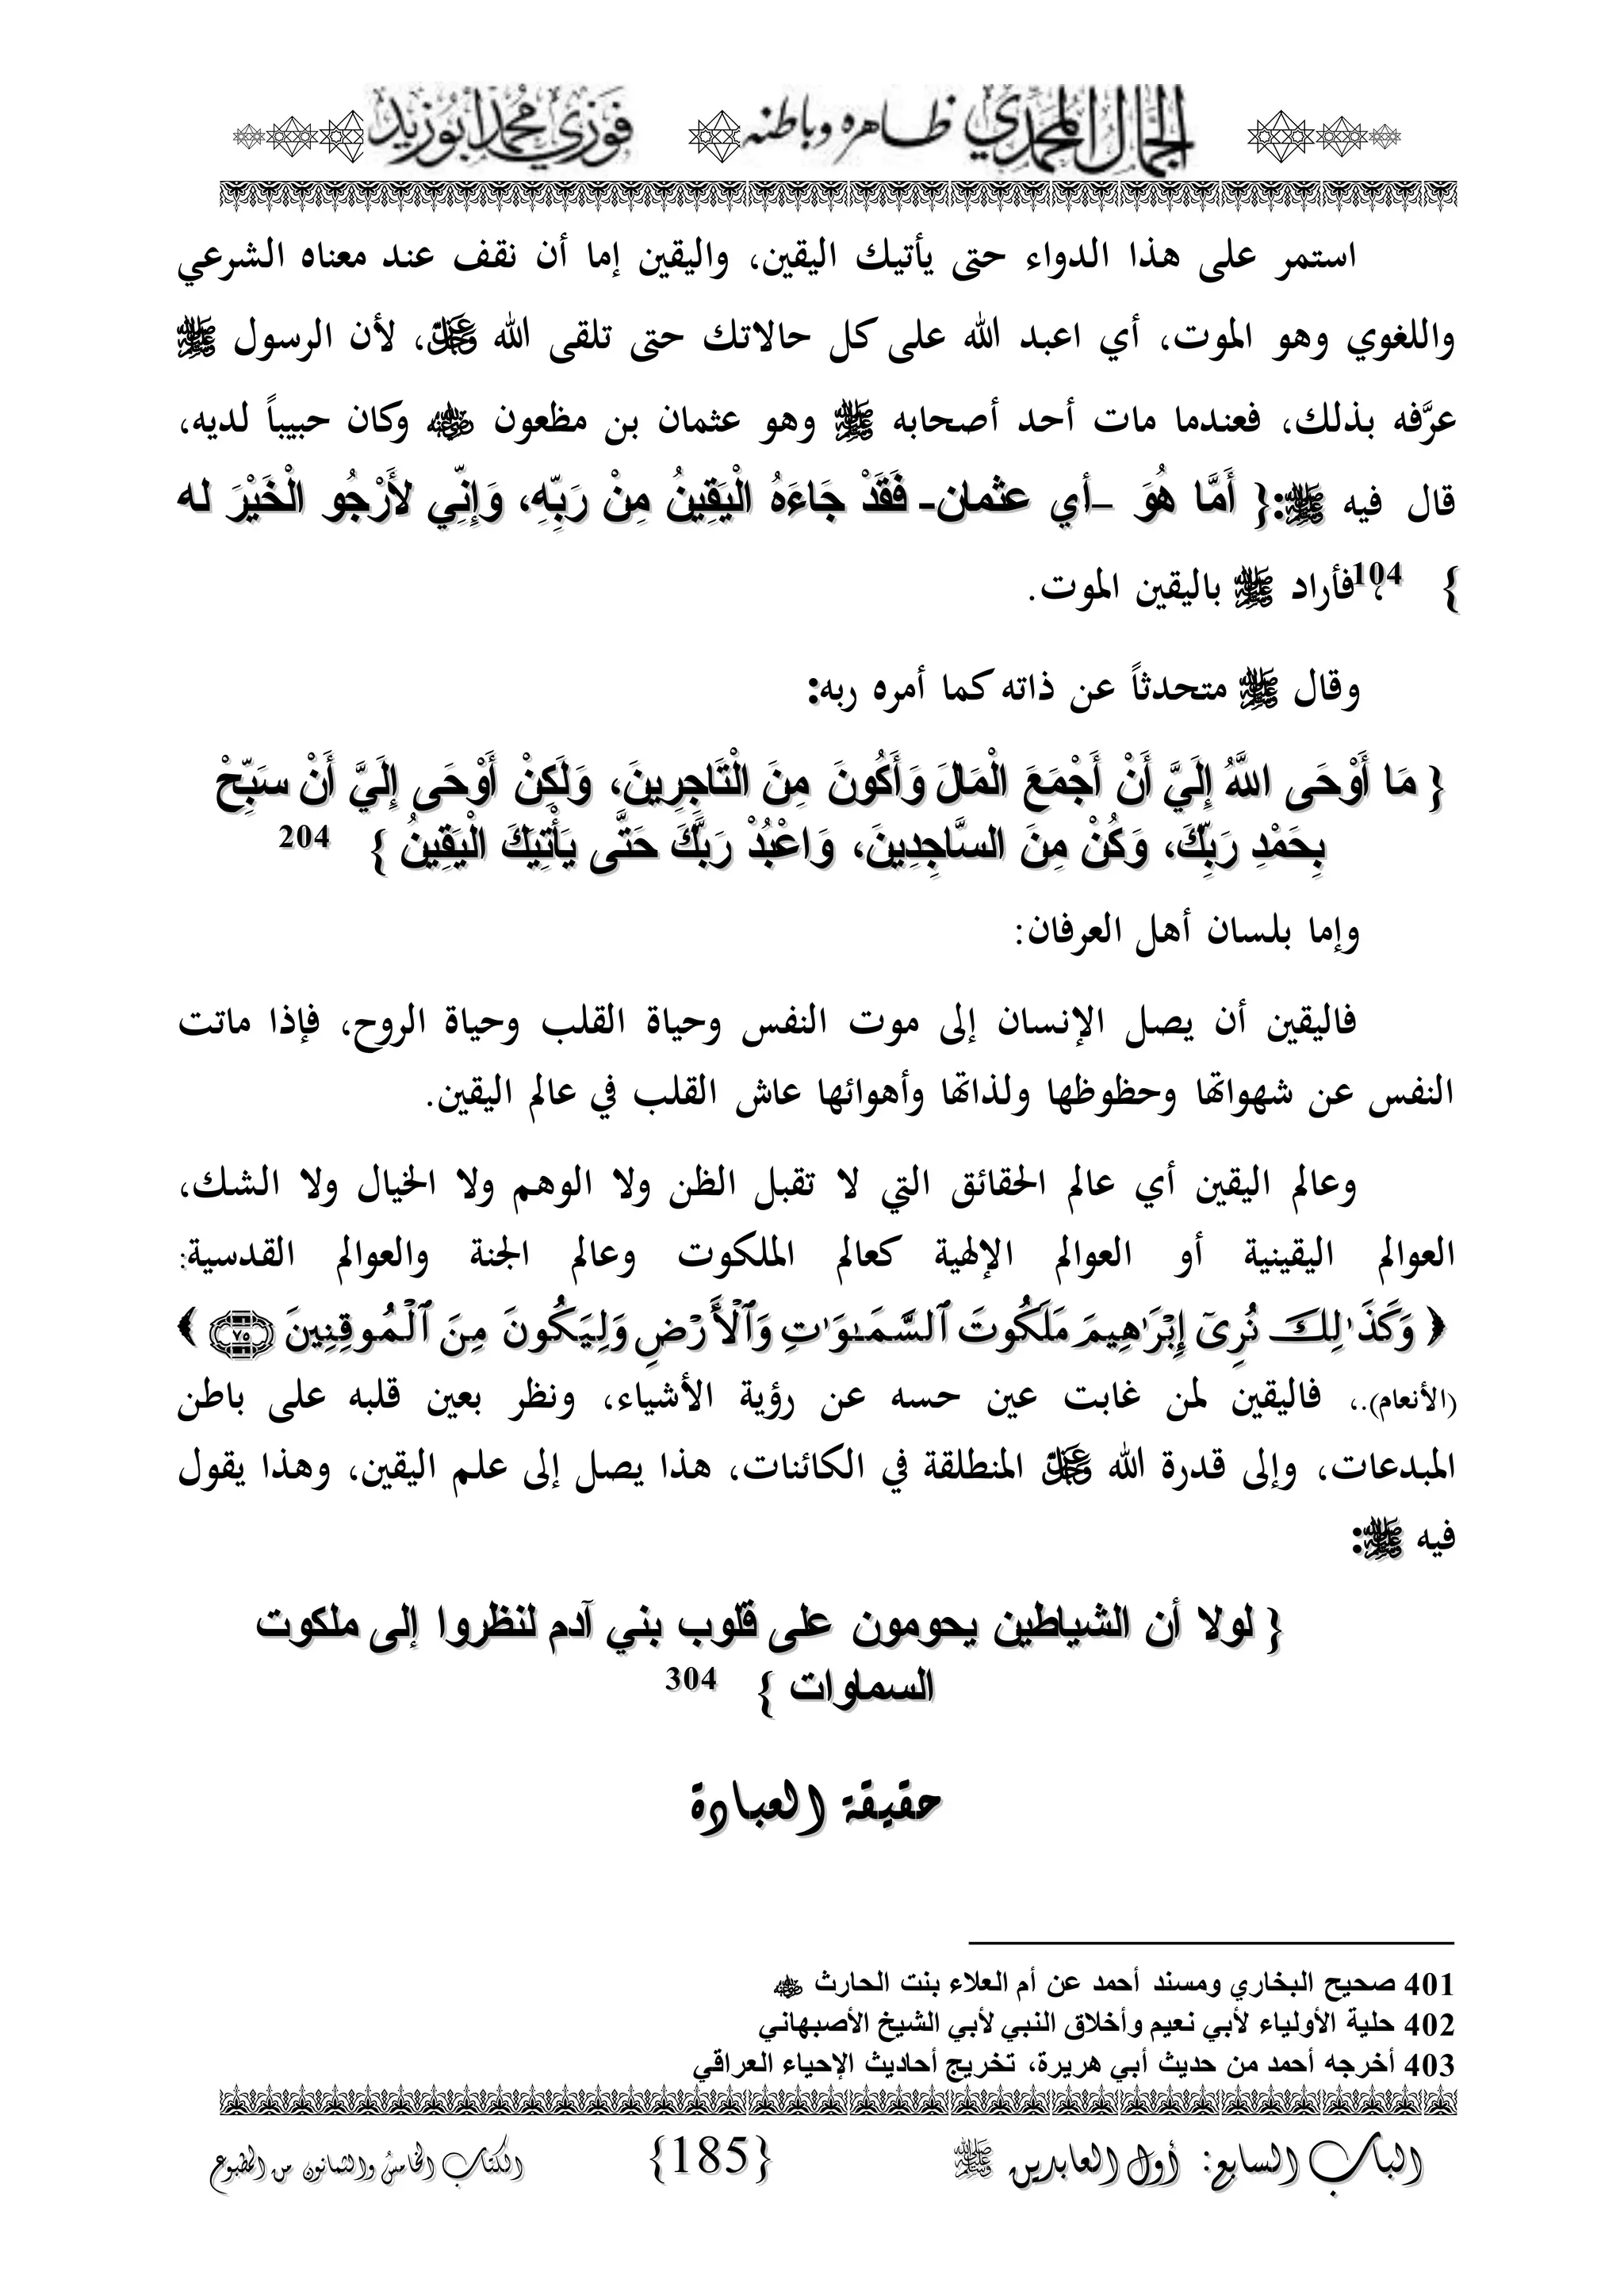 الجمال المحمدي ظاهره وباطنه فوزي محمد أبوزيد
استمر على هذا الدواء حتى يأتيك اليقين، واليقين إما أن نقف عند معناه الشرعي
واللغوي وهو الموت، أي اعبد الله على كل حالاتك حتى تلقى الله عز وجل، لأن الرسول ﷺ
عرَّفه بذلك، فعندما مات أحد أصحابه ﷺ وهو عثمان بن مظعون رضي الله عنه وكان حبيباً لديه،
قال فيه ﷺ:{ أَمَّا هُوَ –أي عثمان- فَقَدْ جَاءَهُ الْيَقِينُ مِنْ رَبِّهِ، وَإِنِّي لأَرْجُو الْخَيْرَ له
}104، فأراد ﷺ باليقين الموت.
وقال ﷺ متحدثاً عن ذاته كما أمره ربه:
{ مَا أَوْحَى اللَّهُ إِلَيَّ أَنْ أَجْمَعَ الْمَالَ وَأَكُونَ مِنَ الْتَاجِرِينَ، وَلَكِنْ أَوْحَى إِلَيَّ أَنْ سَبِّحْ
بِحَمْدِ رَبِّكَ، وَكُنْ مِنَ السَّاجِدِينَ، وَاعْبُدْ رَبَّكَ حَتَّى يَأْتِيَكَ الْيَقِينُ } 204
وإما بلسان أهل العرفان:
فاليقين أن يصل الإنسان إلى موت النفس وحياة القلب وحياة الروح، فإذا ماتت
النفس عن شهواتها وحظوظها ولذاتها وأهوائها عاش القلب في عالم اليقين.
وعالم اليقين أي عالم الحقائق التي لا تقبل الظن ولا الوهم ولا الخيال ولا الشك،
العوالم اليقينية أو العوالم الإلهية كعالم الملكوت وعالم الجنة والعوالم القدسية:
﴿ وَكَذَٰلِكَ نُرِىٓ إِبْرَٰهِيمَ مَلَكُوتَ ٱلسَّمَـٰوَٰتِ وَٱلْأَرْضِ وَلِيَكُونَ مِنَ ٱلْمُوقِنِينَ ٧٥ ﴾
(الأنعام).، فاليقين لمن غابت عين حسه عن رؤية الأشياء، ونظر بعين قلبه على باطن
المبدعات، وإلى قدرة الله عز وجل المنطلقة في الكائنات، هذا يصل إلى علم اليقين، وهذا يقول
فيه ﷺ:
{ لولا أن الشياطين يحومون على قلوب بني آدم لنظروا إلى ملكوت
السماوات } 304
حقيقة العبادة
401 صحيح البخاري ومسند أحمد عن أم العلاء بنت الحارث رضي الله عنه
402 حلية الأولياء لأبي نعيم وأخلاق النبي لأبي الشيخ الأصبهاني
403 أخرجه أحمد من حديث أبي هريرة، تخريج أحاديث الإحياء العراقي
الباب السابع: أول العابدين ﷺ {185} الكتاب الخامس والثمانون من المطبوع